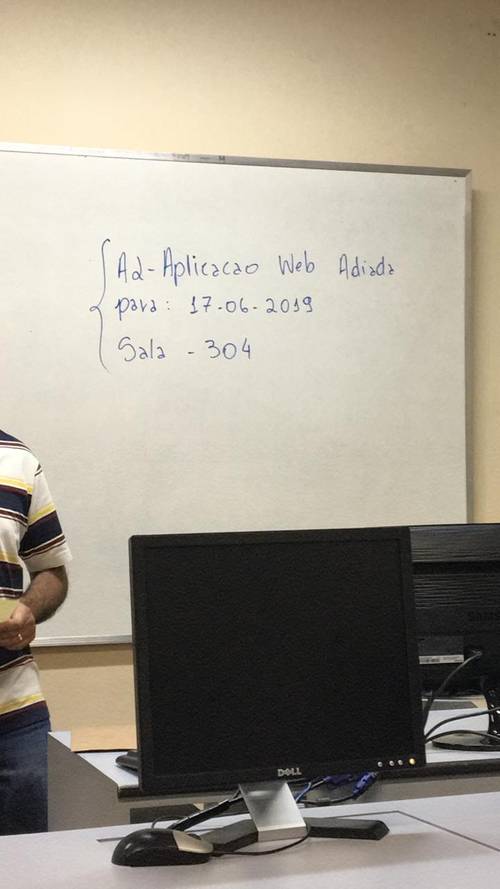 A2-Aplicacao Web Adiada
para: 17-06-2019
Sala - 304
DELL